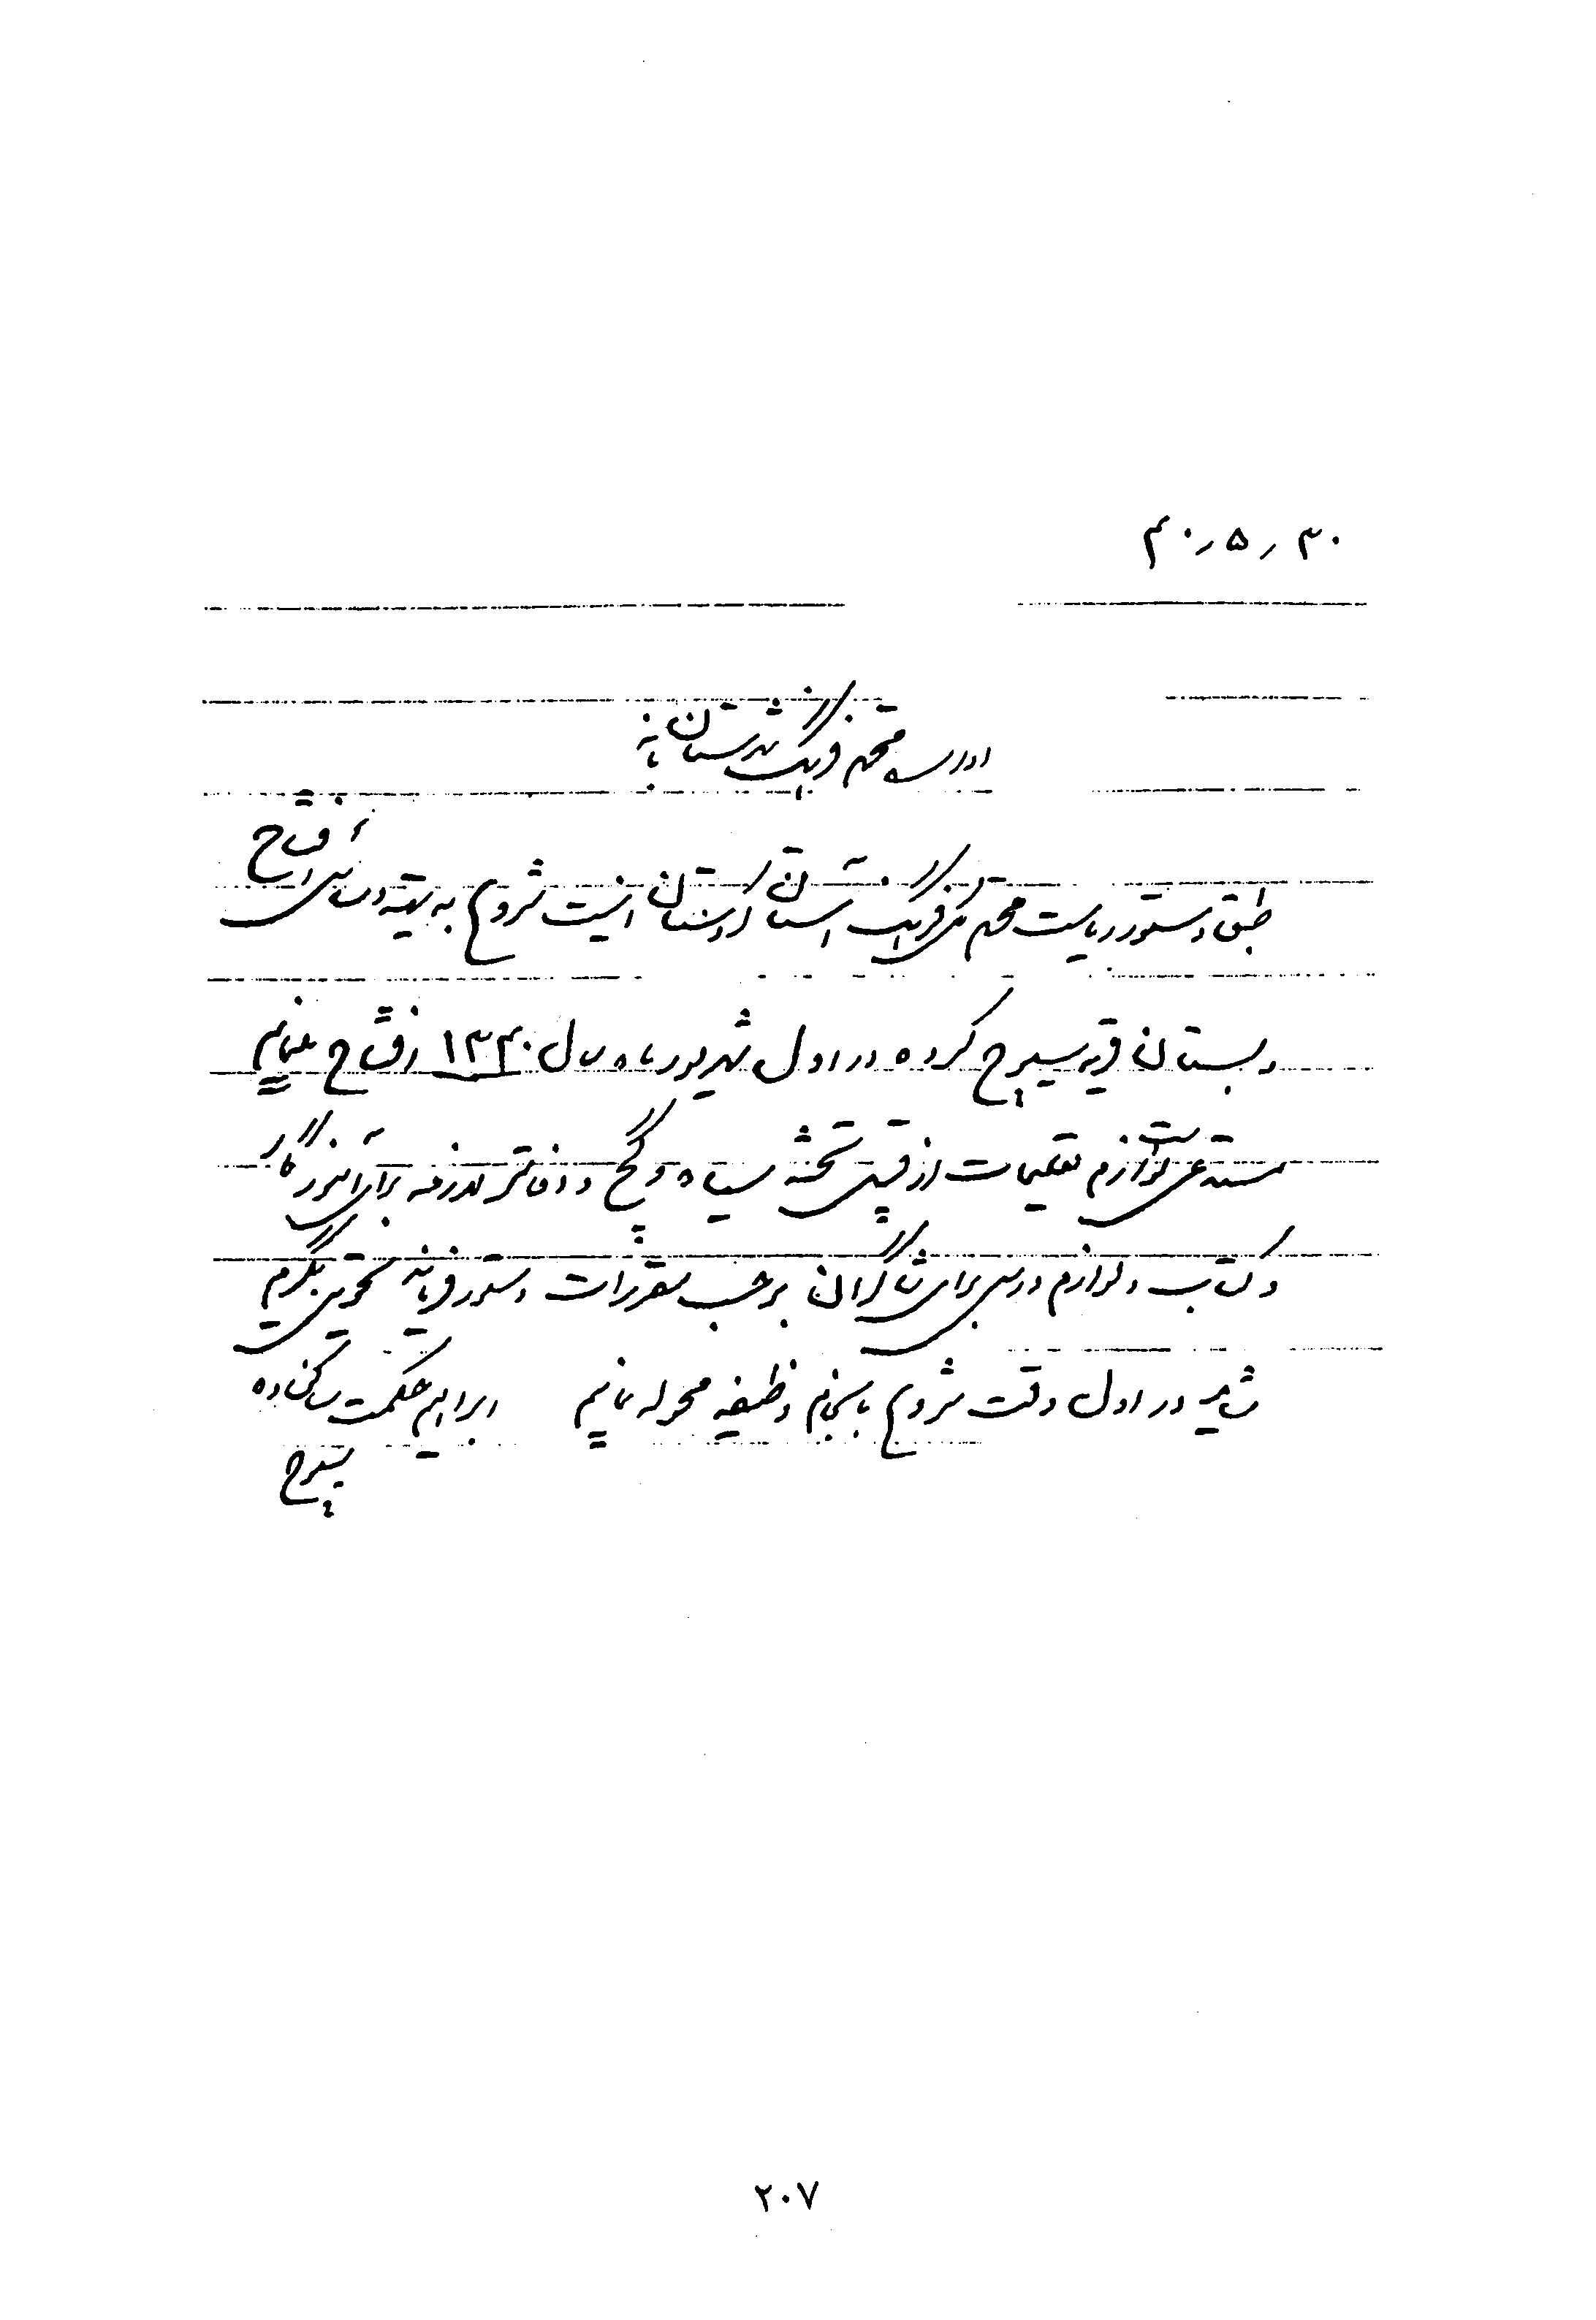 ۳۰ر۵ر۴۰
اداره محترم فرهنگ شهرستان بانه
طبق دستور ریاست محترم کل فرهنگ استان کردستان اینست شروع به تهیه وسائل افتتاح
دبستان قریه سیرج کرده در اول شهریور ماه سال ۱۳۴۰ افتتاح مینمائیم
مستدعی است لوازم تعلیمات از قبیل تخته سیاه و گچ و دفاتر لازمه برای آموزگار
و کتاب و لوازم درسی برای شاگردان برحسب مقررات دستور فرمائید تحویل بگیرم
شاید در اول وقت شروع بانجام وظیفه محوله نمائیم ابراهیم حکمت
سیرج
۲۰۷